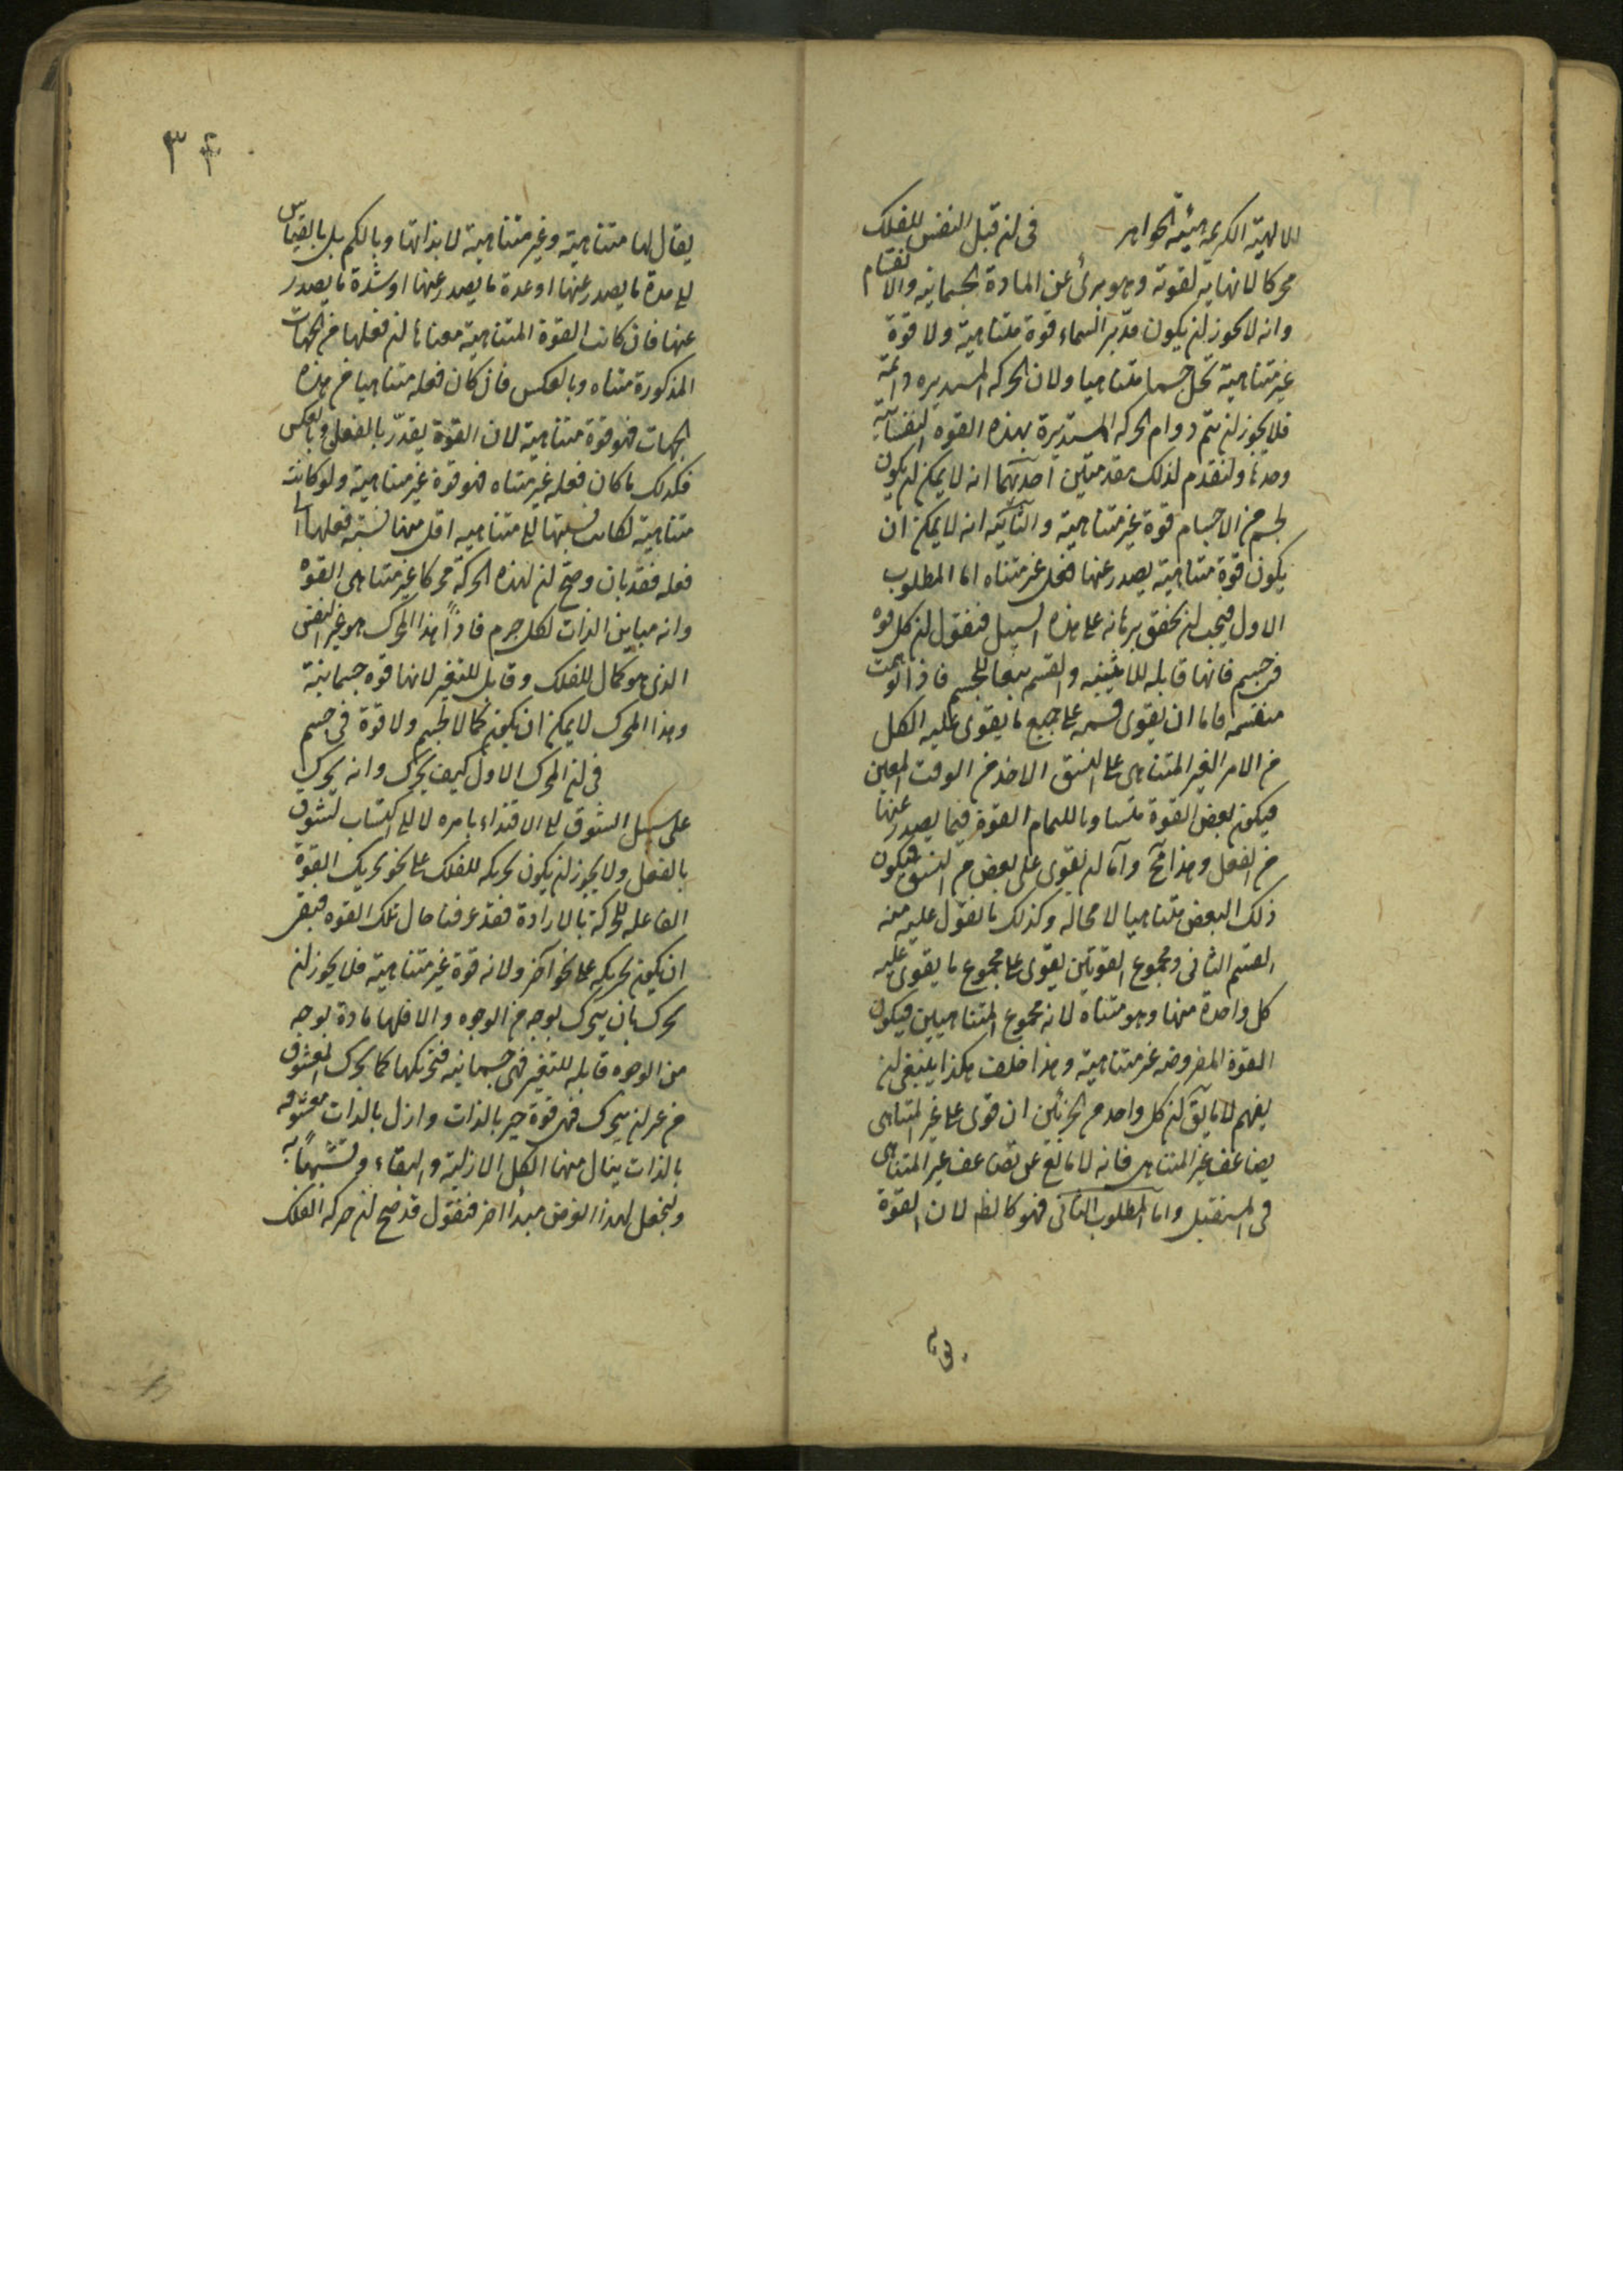 الالهية الكريمة هيئة الجواهر في ان قبل النفس للفلك
محركا لا نهاية لقوته وهو برئ عن المادة الجسمانية والانقسام
وانه لا يجوز ان يكون مدبر السماء قوة متناهية ولا قوة
غير متناهية تحل جسما متناهيا ولان الحركة المستديرة دائمة
فلا يجوز ان يتم دوام الحركة المستديرة بهذه القوة النفسانية
وحدها ولنقدم لذلك مقدمتين احديهما انه لا يمكن ان يكون
لجسم من الاجسام قوة غير متناهية والثانية انه لا يمكن ان
يكون قوة متناهية يصدر عنها فعل غير متناه اما المطلوب
الاول فيجب ان نحقق برهانه على هذه السبيل فنقول ان كل قوة
في جسم فانها قابلة للاثنينية والقسم تبعا للجسم فاذا توهمت
منقسمة فاما ان يقوى قسمه على جميع ما يقوى عليه الكل
من الامر الغير المتناهى على النسق الاخذ من الوقت المعين
فيكون بعض القوة متساويا لتمام القوة فيما يصدر عنها
من الفعل وهذا مح واما ان يقوى على بعض من النسق فيكون
ذلك البعض متناهيا لا محالة وكذلك ما نقول عليه منه
القسم الثانى ومجموع القوتين يقوى على مجموع ما يقوى عليه
كل واحدة منها وهو متناه لانه مجموع المتناهيين فيكون
القوة المفروضة غير متناهية وهذا خلف هكذا ينبغى ان
يفهم لا ما يق ان كل واحد من الجزئين ان قوى على غير المتناهى
يضاعف غير المتناهى فانه لا مانع عن تضاعف غير المتناهى
في المستقبل واما المطلوب الثانى فهو كالظ لان القوة
٣٤
يقال لها متناهية وغير متناهية لا بذاتها وبالكم بل بالقياس
الى مدة ما يصدر عنها او عدة ما يصدر عنها او شدة ما يصدر
عنها فان كانت القوة المتناهية معناها ان فعلها من الجهات
المذكورة متناه وبالعكس فان كان فعله متناهيا من هذه
الجهات فهو قوة متناهية لان القوة يقدر بالفعل وبالعكس
فكذلك ما كان فعله غير متناه فهو قوة غير متناهية ولو كانت
متناهية لكانت نسبتها الى متناهية اقل منها نسبة فعلها الى
فعله فقد بان وضح ان لهذه الحركة محركا غير متناهى القوة
وانه مباين الذات لكل جرم فاذاً هذا المحرك هو غير النفس
الذى هو كمال للفلك وقابل للتغير لانها قوة جسمانية
وهذا المحرك لا يمكن ان يكون كمالا لجسم ولا قوة في جسم
في ان المحرك الاول كيف يحرك وانه يحرك
على سبيل الشوق الى الاقتداء بامره لا الى اكتساب لتشوق
بالفعل ولا يجوز ان يكون تحريكه للفلك على نحو تحريك القوة
الفاعلة للحركة بالارادة فقد عرفنا حال تلك القوة فبقى
ان يكون تحريكه على نحو آخر ولانه قوة غير متناهية فلا يجوز ان
تحرك بان يتحرك بوجه من الوجوه والا فلها مادة بوجه
من الوجوه قابلة للتغير فهى جسمانية فتحريكها كما يحرك المعشوق
من غير ان يتحرك فهى قوة خير بالذات وازل بالذات معشوقه
بالذات ينال منها الكل الازلية والبقاء وتشبهاً به
ولنجعل لهذا الغرض مبدأ اخر فنقول قد صح ان حركة الفلك